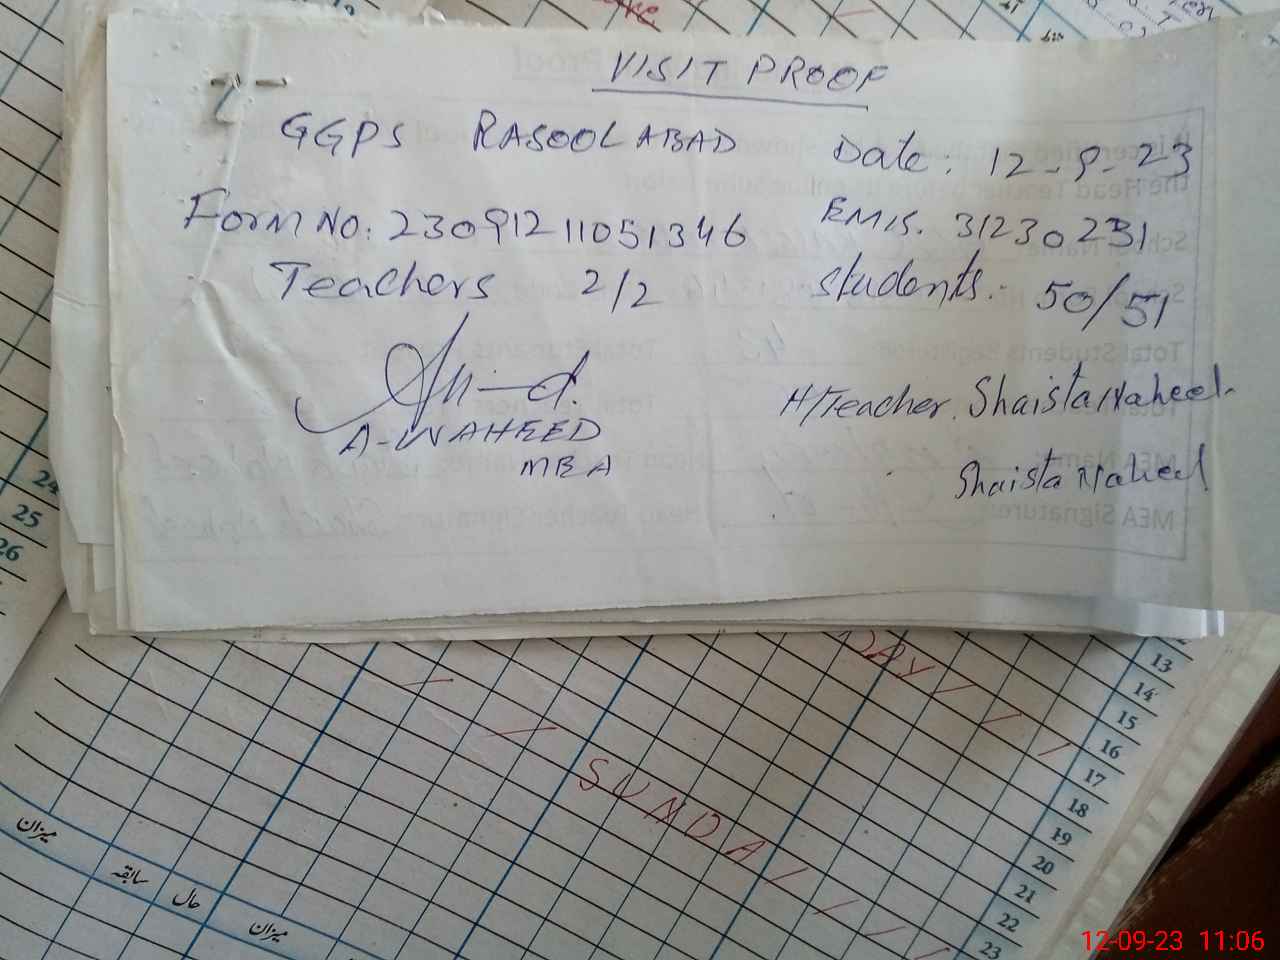 VISIT PROOF
GGPS RASOOLABAD Date: 12-9-23
Form No: 23091211051346 EMIS. 31230231
Teachers 2/2 Students: 50/51
A-WAHEED
MEA
H/Teacher. Shaista Naheed.
Shaista Naheed
24
25
26
DAY
SUNDAY
13
14
15
16
17
18
19
20
21
22
23
میزان
سابقہ
حال
میزان
12-09-23 11:06